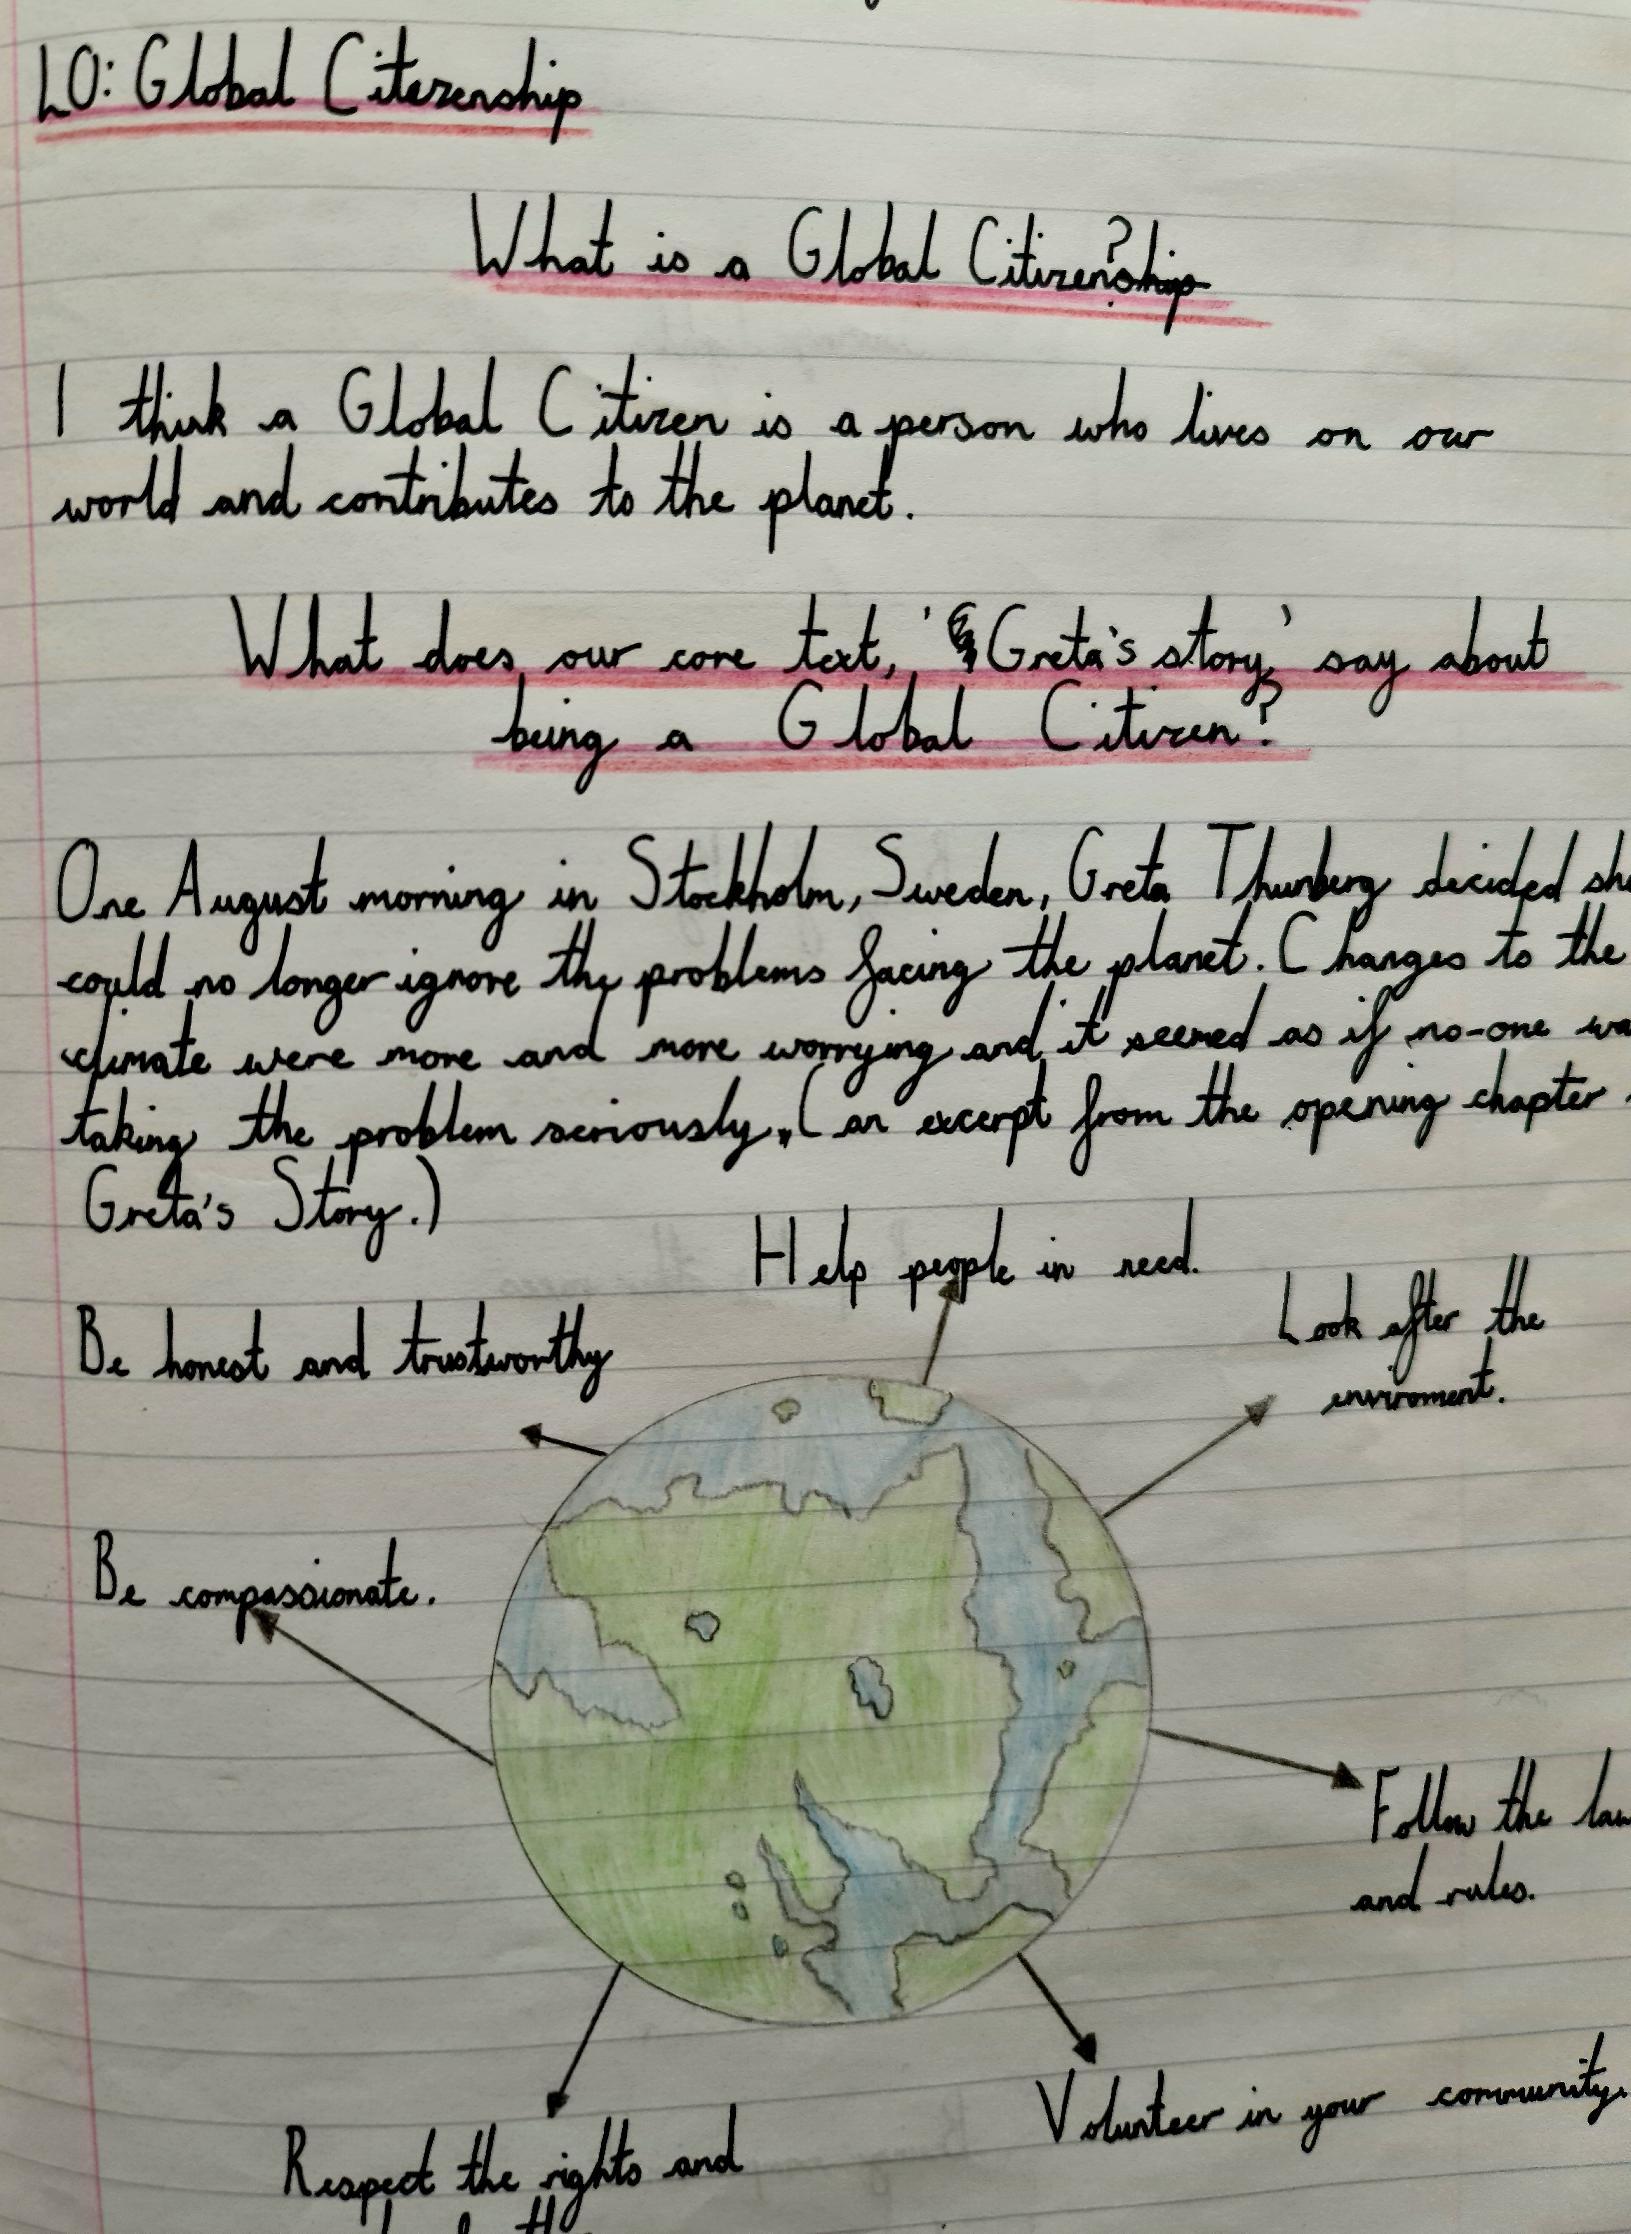 LO: Global Citezenship
What is a Global Citizen?ship
I think a Global Citizen is a person who lives on our
world and contributes to the planet.
What does our core text, 'Greta's story' say about
being a Global Citizen?
One August morning in Stockholm, Sweden, Greta Thunberg decided she
could no longer ignore the problems facing the planet. Changes to the
climate were more and more worrying and it seemed as if no-one wa
taking the problem seriously. (an excerpt from the opening chapter
Greta's Story.)
Help people in need.
Be honest and trustworthy
Look after the
enviroment.
Be compassionate.
Follow the law
and rules.
Volunteer in your community.
Respect the rights and